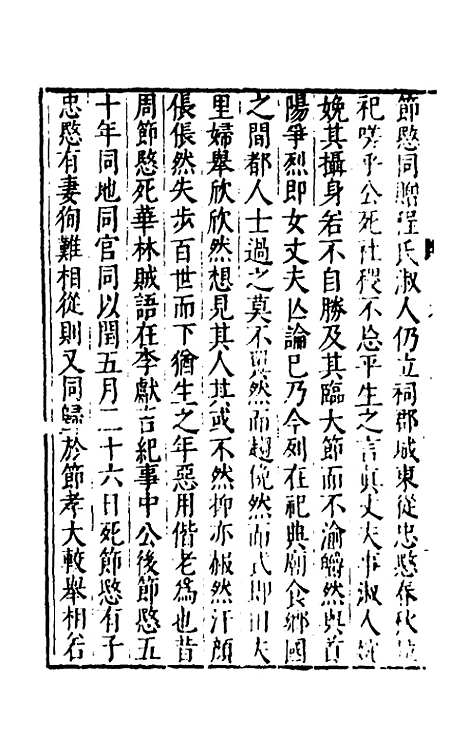 節愍同贈程氏淑人仍立祠郡城東從忠愍春秋
祀嗟乎公死社稷不忘平生之言真丈夫事淑人婉
娩其攝身若不自勝及其臨大節而不渝皭然與首
陽爭烈即女丈夫亡論已乃今列在祀典廟食鄉國
之間都人士過之莫不異然而趨俛然而式即田夫
里婦舉欣欣然想見其人其或不然抑亦赧然汗顏
倀倀然失步百世而下猶生之年惡用偕老為也昔
周節愍死華林賊語在李獻吉紀事中公後節愍五
十年同地同官同以閏五月二十六日死節愍有子
忠愍有妻徇難相從則又同歸於節孝大較舉相若